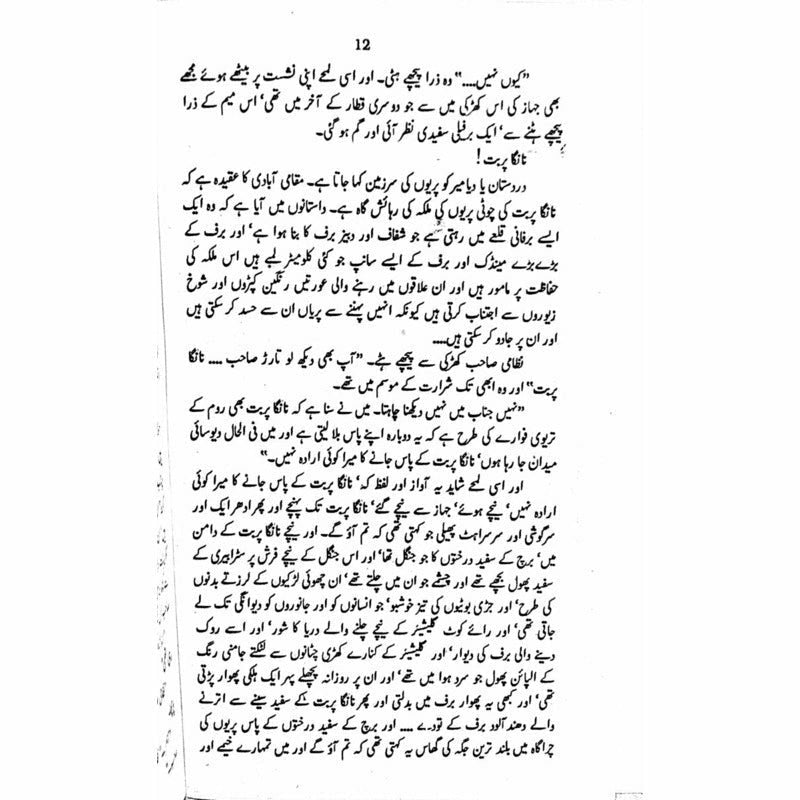 12
”کیوں نہیں....“ وہ ذرا پیچھے ہٹی۔ اور اسی لمحے اپنی نشست پر بیٹھے ہوئے مجھے
بھی جہاز کی اس کھڑکی میں سے جو دوسری قطار کے آخر میں تھی‘ اس میم کے ذرا
پیچھے ہٹنے سے‘ ایک برفیلی سفیدی نظر آئی اور گم ہو گئی۔
نانگا پربت!
دردستان یا دیامیر کو پریوں کی سرزمین کہا جاتا ہے۔ مقامی آبادی کا عقیدہ ہے کہ
نانگا پربت کی چوٹی پریوں کی ملکہ کی رہائش گاہ ہے۔ داستانوں میں آیا ہے کہ وہ ایک
ایسے برفانی قلعے میں رہتی ہے جو شفاف اور دبیز برف کا بنا ہوا ہے‘ اور برف کے
بڑے بڑے مینڈک اور برف کے ایسے سانپ جو کئی کلومیٹر لمبے ہیں اس ملکہ کی
حفاظت پر مامور ہیں اور ان علاقوں میں رہنے والی عورتیں رنگین کپڑوں اور شوخ
زیوروں سے اجتناب کرتی ہیں کیونکہ انہیں پہننے سے پریاں ان سے حسد کر سکتی ہیں
اور ان پر جادو کر سکتی ہیں....
نظامی صاحب کھڑکی سے پیچھے ہٹے۔ ”آپ بھی دیکھ لو تارڑ صاحب .... نانگا
پربت“ اور وہ ابھی تک شرارت کے موسم میں تھے۔
”نہیں جناب میں نہیں دیکھنا چاہتا۔ میں نے سنا ہے کہ نانگا پربت بھی روم کے
تریوی فوارے کی طرح ہے کہ یہ دوبارہ اپنے پاس بلا لیتی ہے اور میں فی الحال دیوسائی
میدان جا رہا ہوں‘ نانگا پربت کے پاس جانے کا میرا کوئی ارادہ نہیں۔“
اور اسی لمحے شاید یہ آواز اور لفظ کہ‘ نانگا پربت کے پاس جانے کا میرا کوئی
ارادہ نہیں‘ نیچے ہوئے‘ جہاز سے نیچے گئے‘ نانگا پربت تک پہنچے اور پھر ادھر ایک اور
سرگوشی اور سرسراہٹ پھیلی جو کہتی تھی کہ تم آؤ گے۔ اور نیچے نانگا پربت کے دامن
میں‘ برچ کے سفید درختوں کا جو جنگل تھا‘ اور اس جنگل کے نیچے فرش پر سٹرابیری کے
سفید پھول بچھے تھے اور چشمے جو ان میں چلتے تھے‘ ان چھوئی لڑکیوں کے لرزتے بدنوں
کی طرح‘ اور جڑی بوٹیوں کی تیز خوشبو‘ جو انسانوں کو اور جانوروں کو دیوانگی تک لے
جاتی تھی‘ اور رائے کوٹ گلیشیئر کے نیچے چلنے والے دریا کا شور‘ اور اسے روک
دینے والی برف کی دیوار‘ اور گلیشیئر کے کنارے کھڑی چٹانوں سے لٹکتے جامنی رنگ
کے الپائن پھول جو سرد ہوا میں تھے‘ اور ان پر روزانہ پچھلے پہر ایک ہلکی پھوار پڑتی
تھی‘ اور کبھی یہ پھوار برف میں بدلتی اور پھر نانگا پربت کے سفید سینے سے اترنے
والے دھند آلود برف کے تودے .... اور برچ کے سفید درختوں کے پاس پریوں کی
چراگاہ میں بلند ترین جگہ کی گھاس یہ کہتی تھی کہ تم آؤ گے اور میں تمہارے خیمے اور